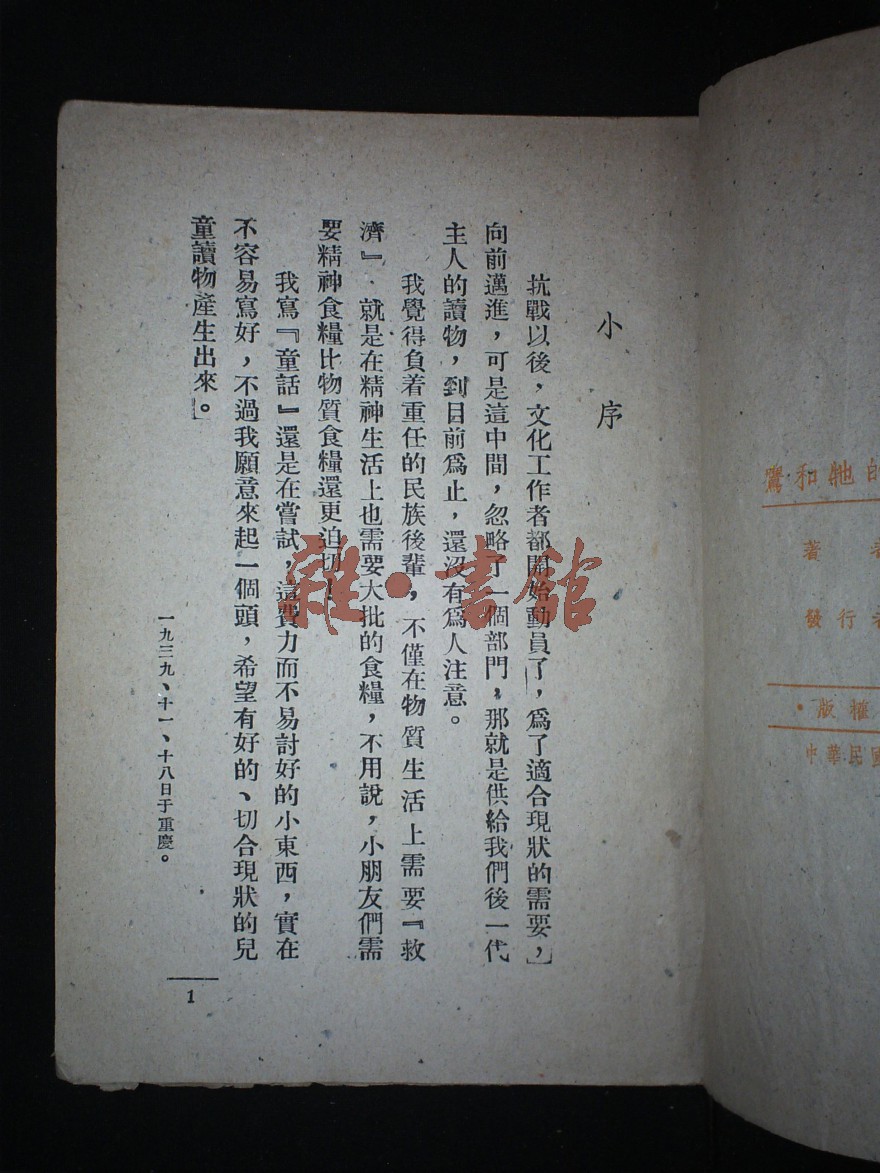 小序
抗戰以後，文化工作者都開始動員了，爲了適合現狀的需要，
向前邁進，可是這中間，忽略了一個部門，那就是供給我們後一代
主人的讀物，到目前爲止，還沒有爲人注意。
我覺得負着重任的民族後輩，不僅在物質生活上需要『救
濟』．就是在精神生活上也需要大批的食糧，不用說，小朋友們需
要精神食糧比物質食糧還更迫切！
我寫『童話』還是在嘗試，這費力而不易討好的小東西，實在
不容易寫好，不過我願意來起一個頭，希望有好的、切合現狀的兒
童讀物產生出來。
一九三九、十一、十八日于重慶。
1
雜·書館
和牠的
著 者
發行者
·版權
中華民國